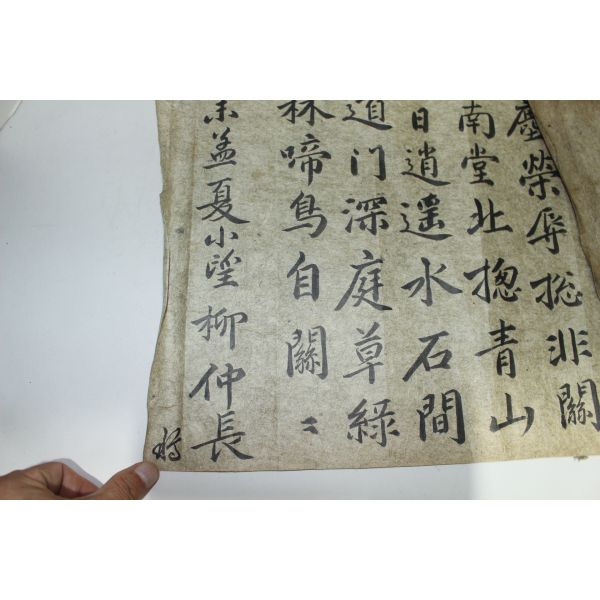 塵榮辱揔非關
南堂北揔青山
日逍遥水石間
道门深庭草綠
林啼鳥自關〻
未孟夏小望柳仲長